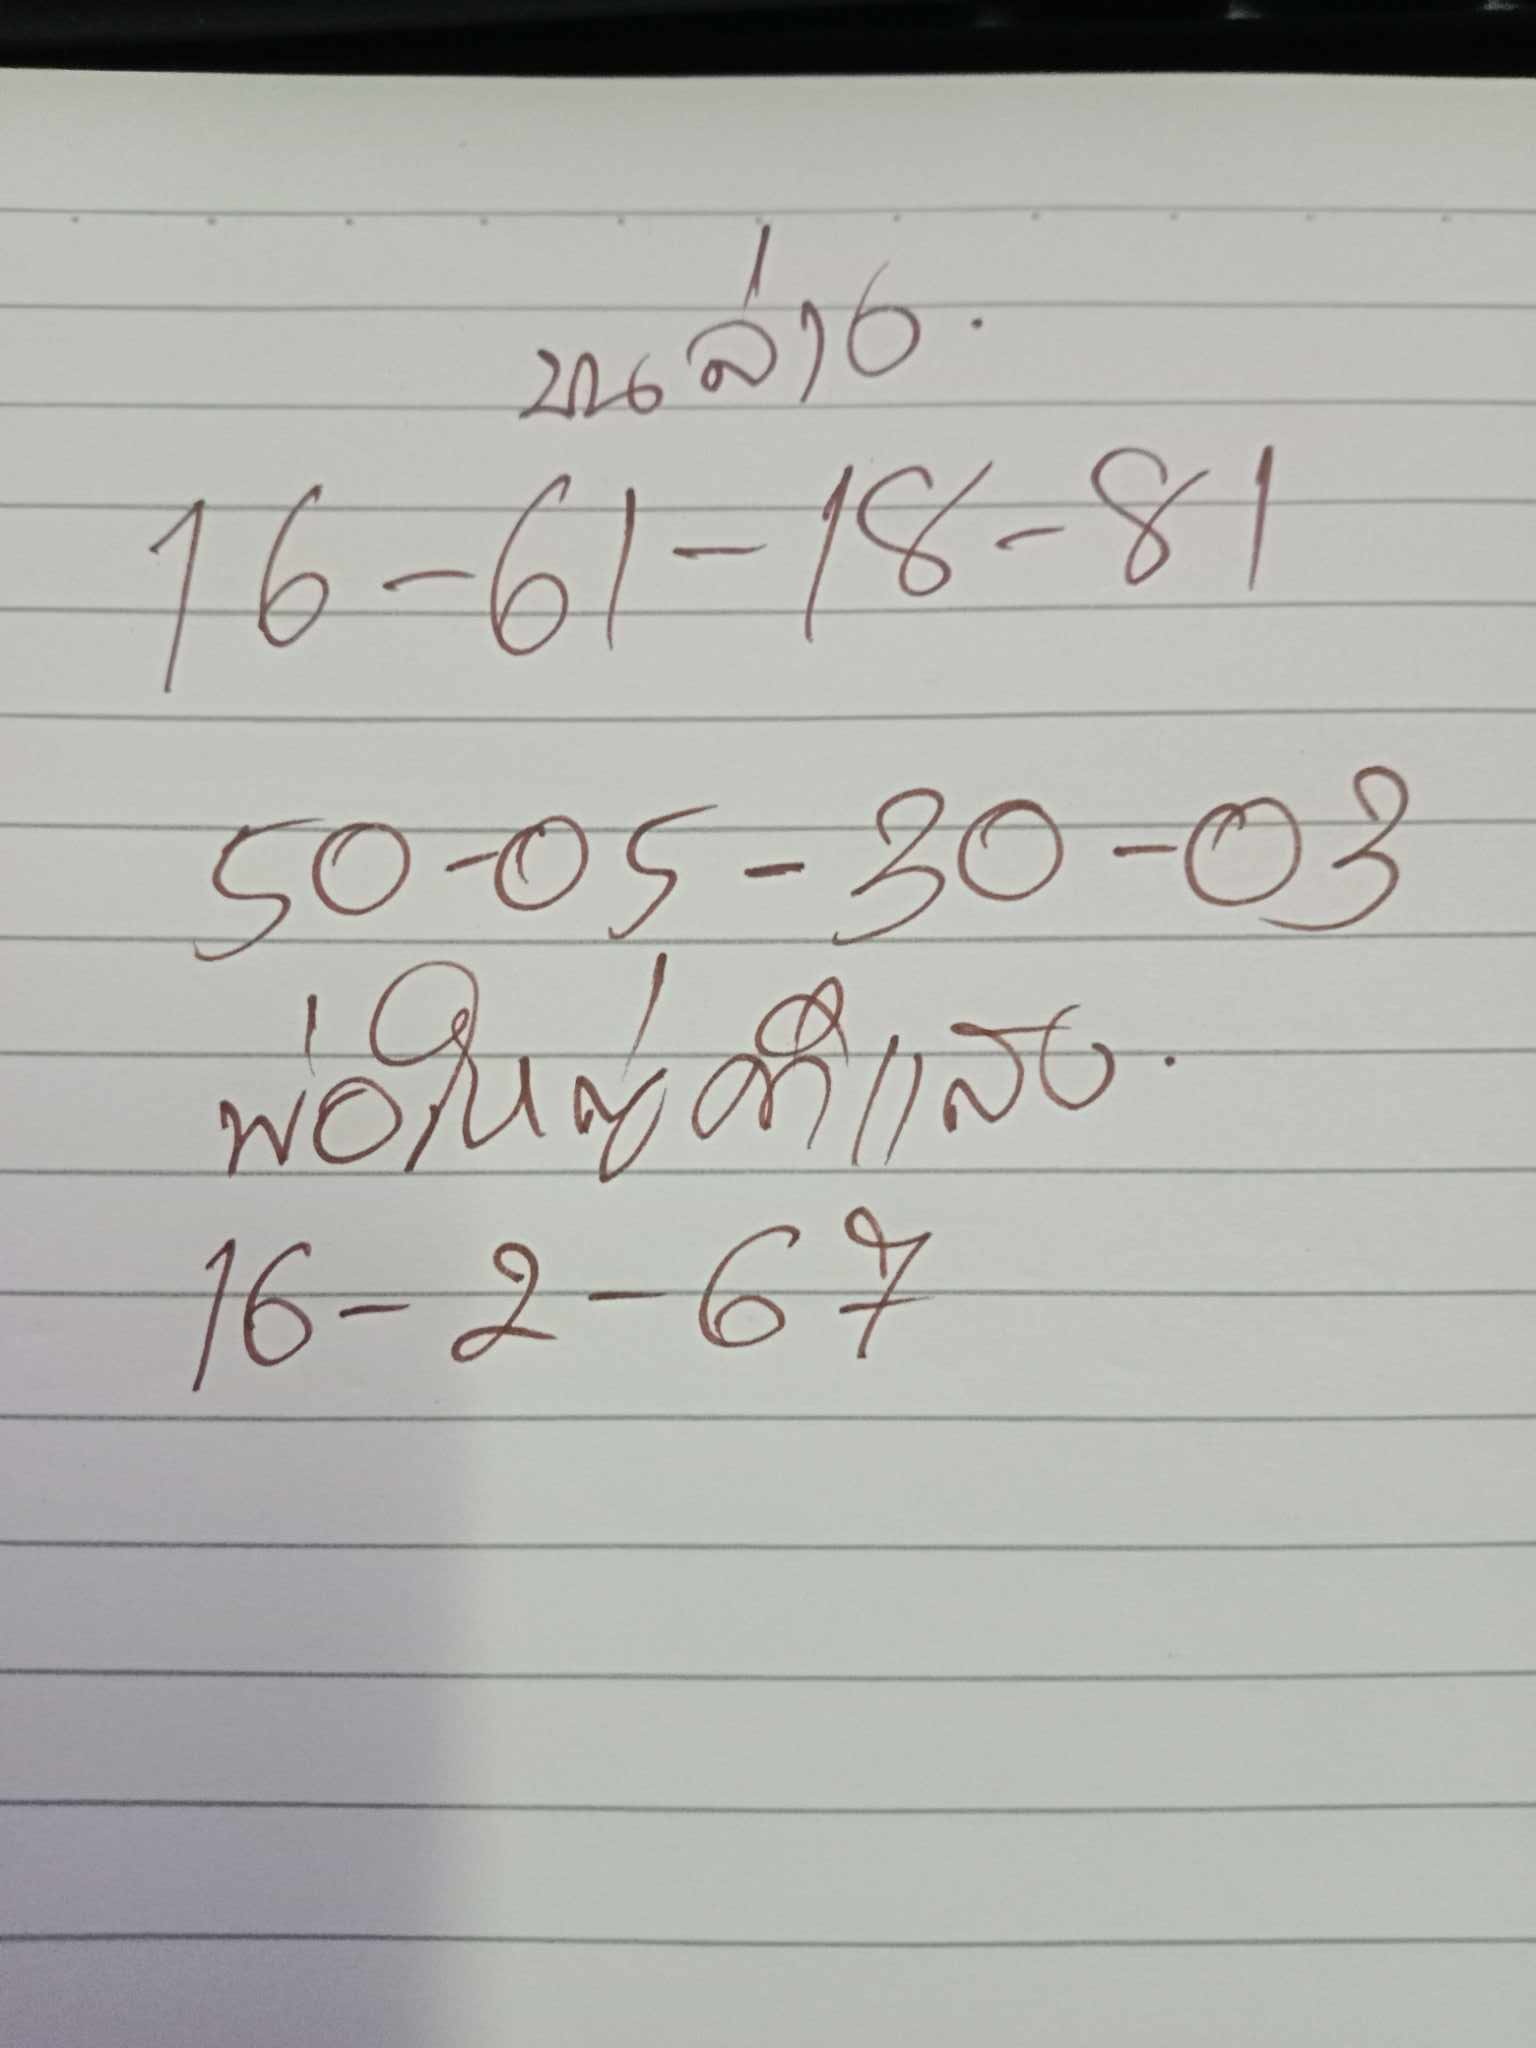 บนล่าง.
16-61-18-81
50-05-30-03
พ่อใหญ่คำแสง.
16-2-67